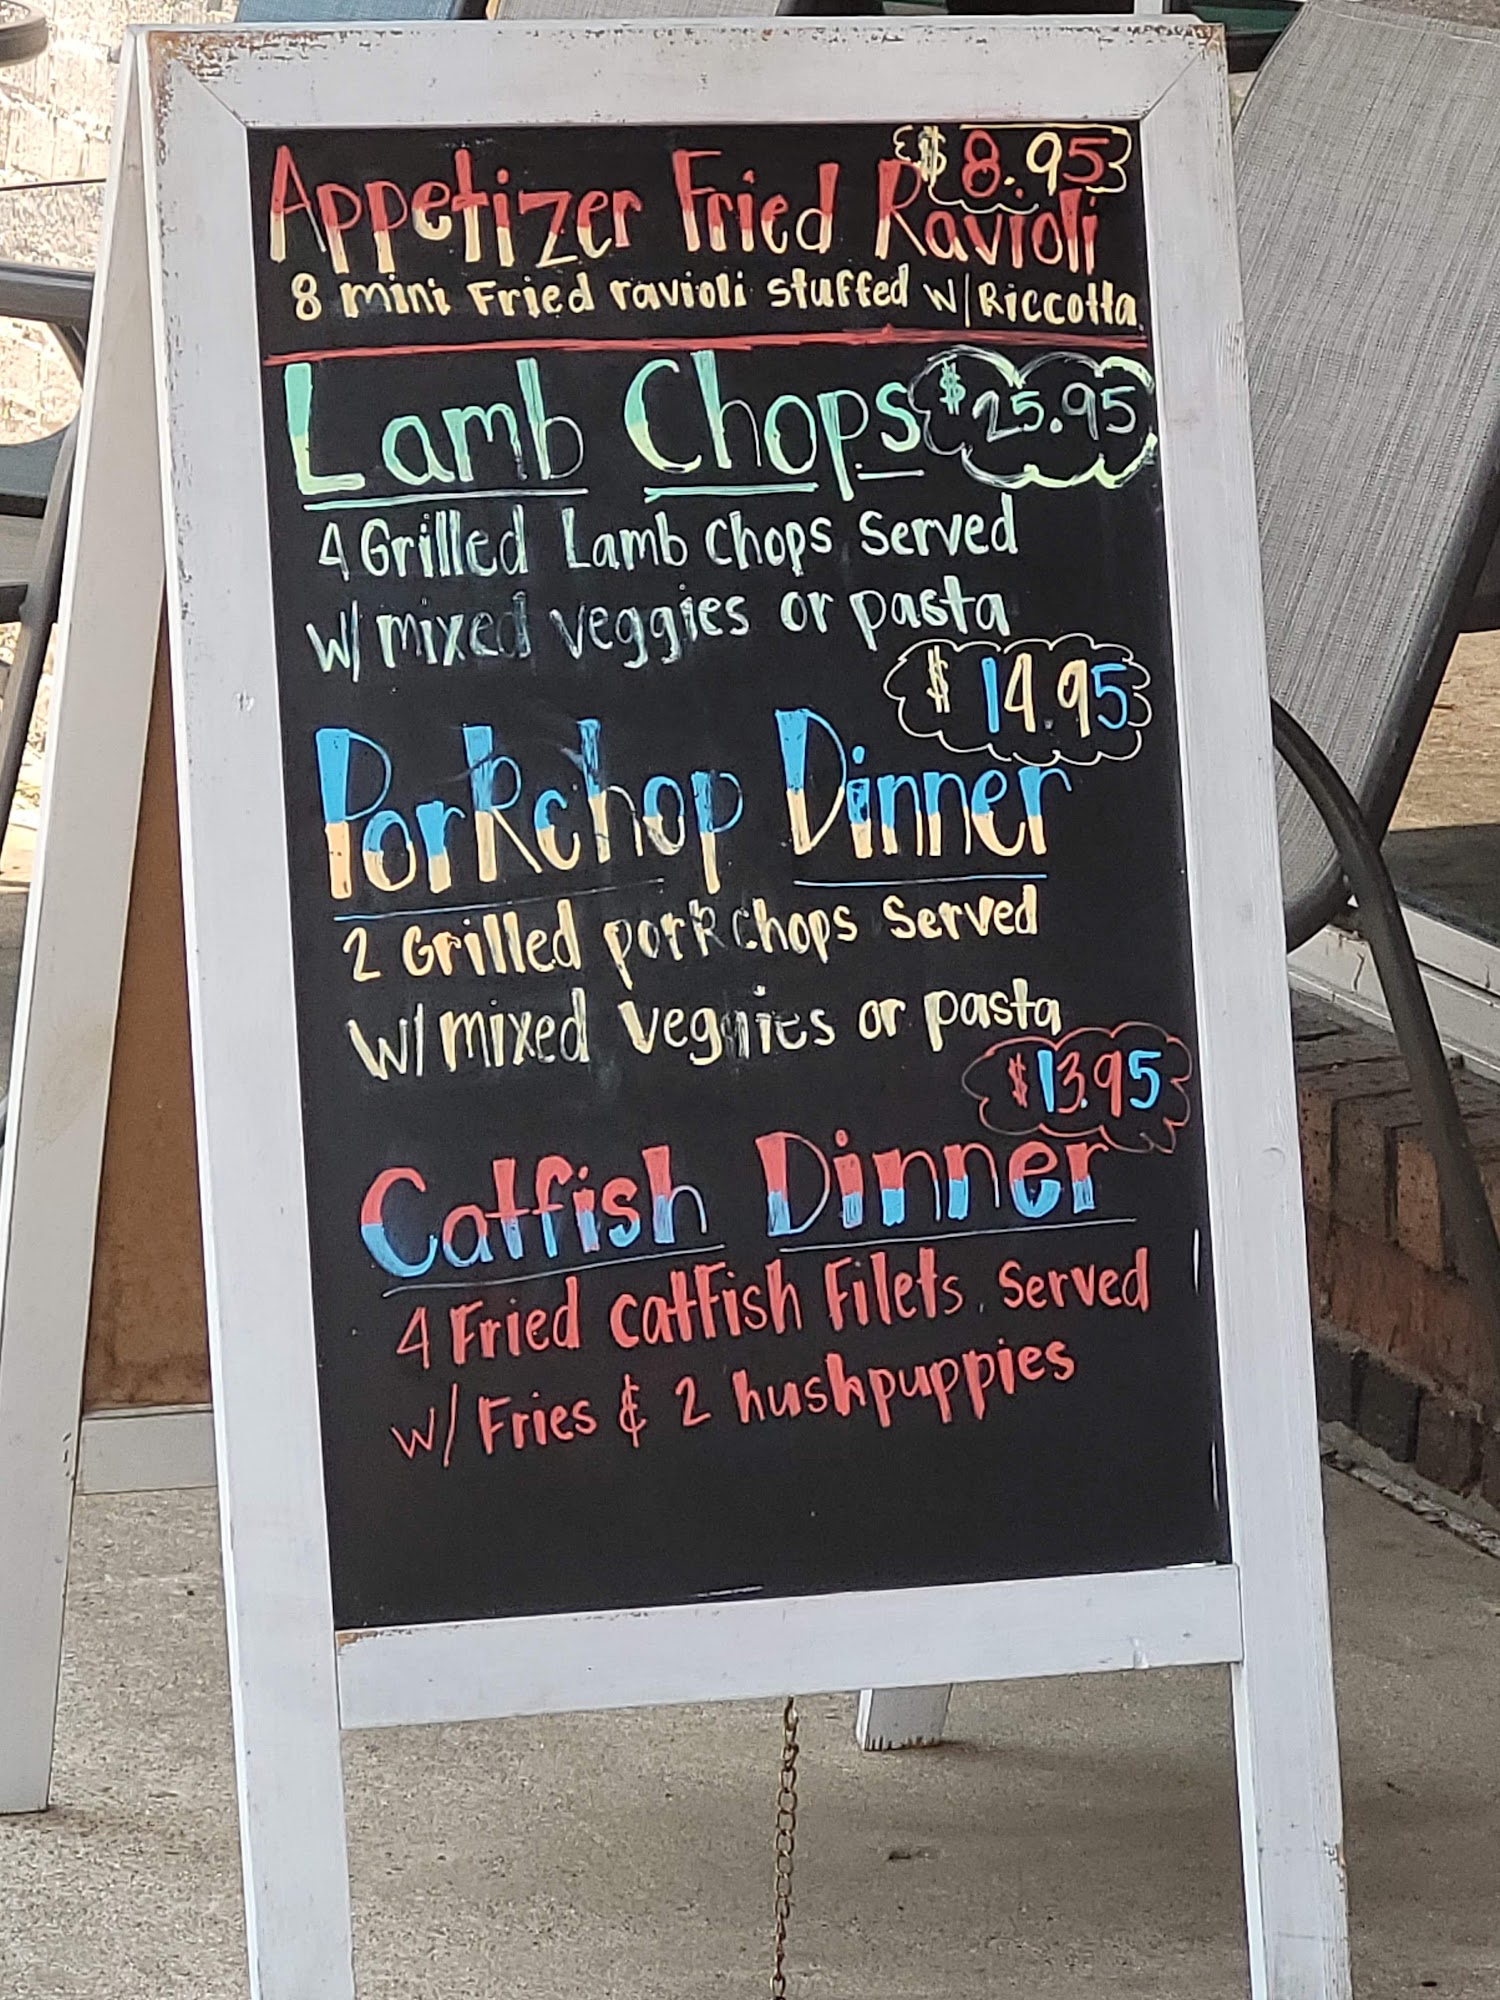 $8.95
Appetizer Fried Ravioli
8 mini Fried ravioli stuffed w/ Riccotta
Lamb Chops $25.95
4 Grilled Lamb Chops Served
w/ mixed veggies or pasta
$14.95
Porkchop Dinner
2 Grilled pork chops Served
w/ mixed veggies or pasta
$13.95
Catfish Dinner
4 Fried catfish Filets. Served
w/ Fries & 2 hushpuppies